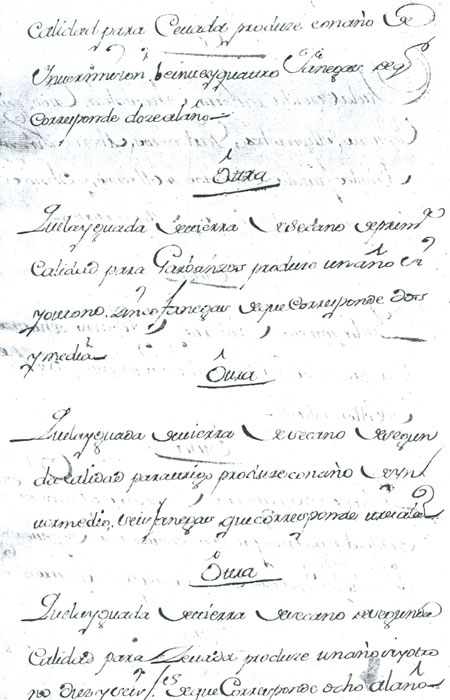 Calidad para Cevada produze con año de
Intermision, beinte y quatro fanegas de q
Corresponde doze al año
Otra
Que la yguada de tierra de secano de prim.ª
Calidad para Garbanzos produze un año si
y otro no, zinco fanegas de que Corresponde dos
y media
Otra
Que la yguada de tierra de secano de segun
da calidad para trigo produze con año de yn
termedio, seis fanegas que corresponde tres al a
Otra
Que la yguada de tierra de secano de segunda
Calidad para Zevada produze un año si y otro
no diez y seis f.s de que Corresponde ocho al año